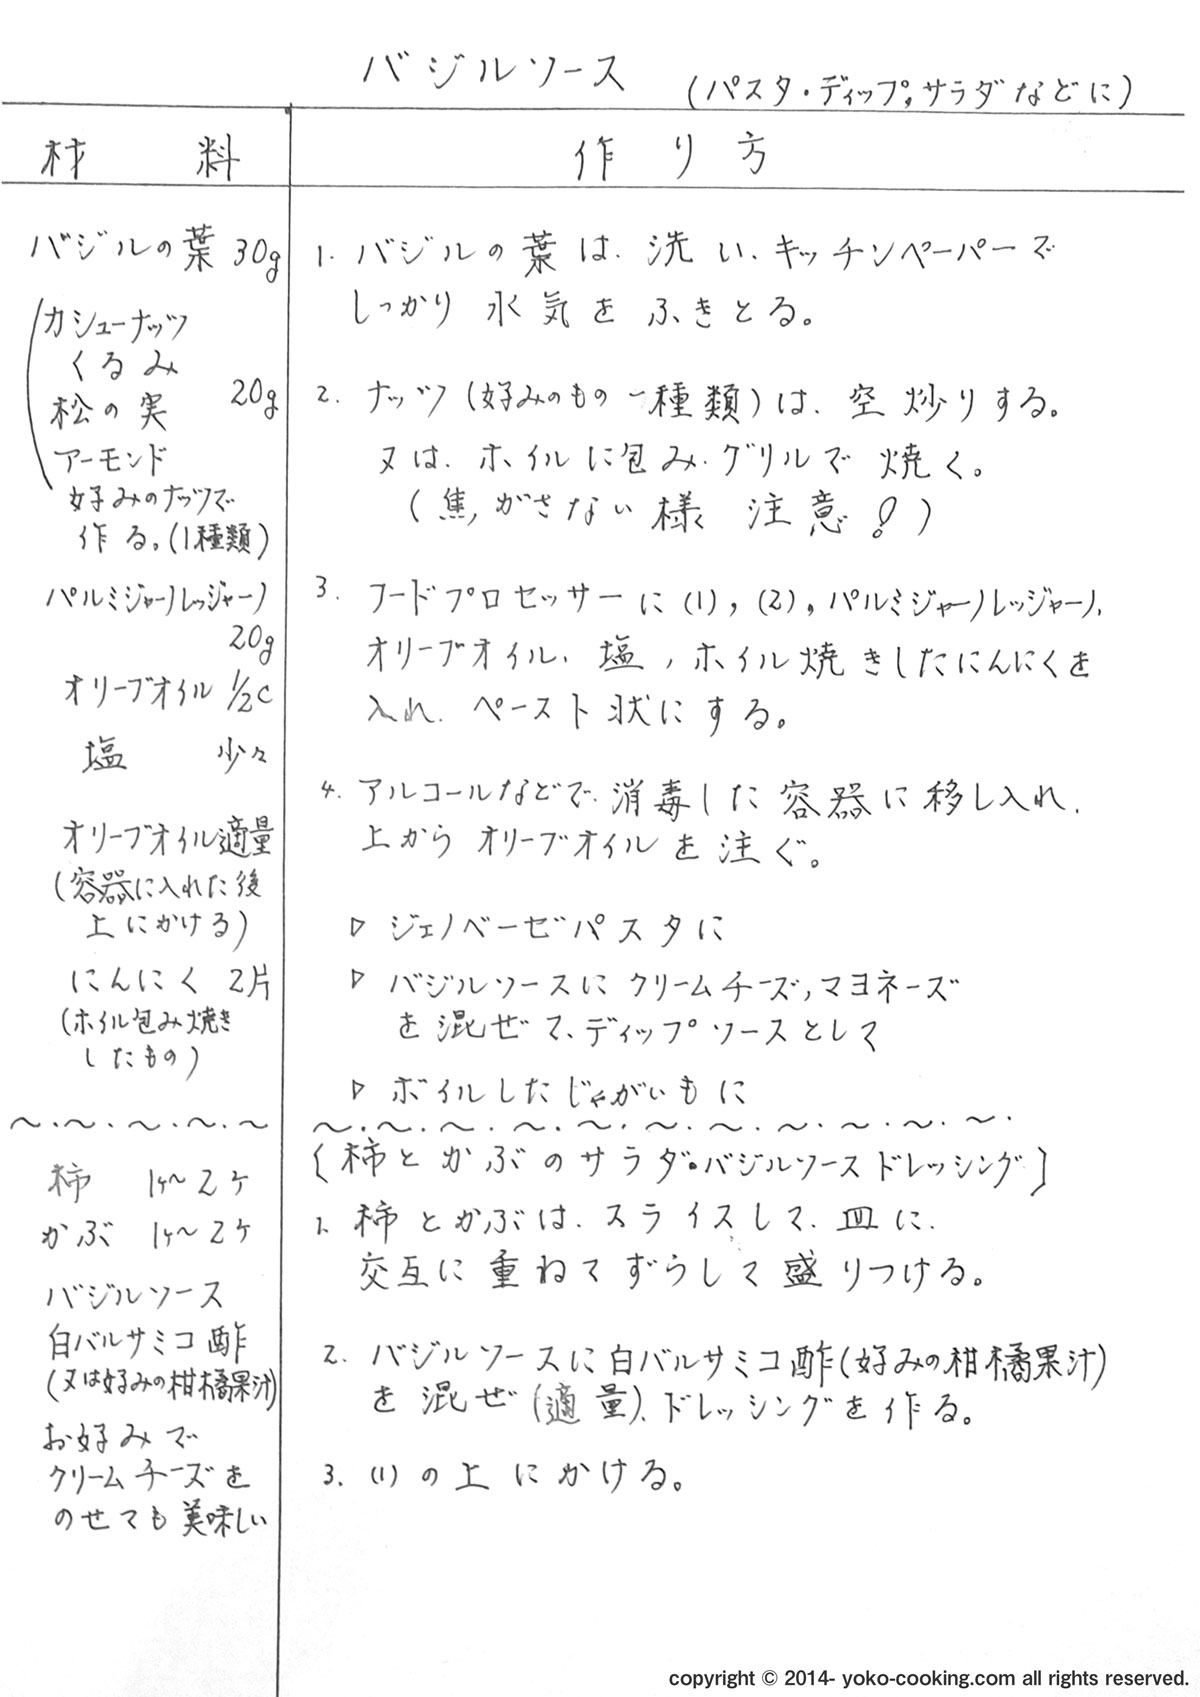 バジルソース
(パスタ・ディップ,サラダなどに)
材料
作り方
バジルの葉 30g
カシューナッツ
くるみ
松の実
20g
アーモンド
好みのナッツで
作る。(1種類)
パルミジャーノレッジャーノ
20g
オリーブオイル 1/2c
塩 少々
オリーブオイル適量
(容器に入れた後
上にかける)
にんにく 2片
(ホイル包み焼き
したもの)
1. バジルの葉は、洗い、キッチンペーパーで
しっかり水気をふきとる。
2. ナッツ(好みのもの一種類)は、空炒りする。
又は、ホイルに包み、グリルで焼く。
(焦がさない様注意!)
3. フードプロセッサーに(1),(2),パルミジャーノレッジャーノ,
オリーブオイル、塩,ホイル焼きしたにんにくを
入れ、ペースト状にする。
4. アルコールなどで、消毒した容器に移し入れ、
上からオリーブオイルを注ぐ。
▷ ジェノベーゼパスタに
▷ バジルソースにクリームチーズ,マヨネーズ
を混ぜて、ディップソースとして
▷ ボイルしたじゃがいもに
〜・〜・〜・〜・〜
〜・〜・〜・〜・〜・〜・〜・〜・〜・〜・〜・
柿 1ヶ〜2ヶ
かぶ 1ヶ〜2ヶ
バジルソース
白バルサミコ酢
(又は好みの柑橘果汁)
お好みで
クリームチーズを
のせても美味しい
[柿とかぶのサラダ・バジルソースドレッシング]
1. 柿とかぶは、スライスして、皿に、
交互に重ねてずらして盛りつける。
2. バジルソースに白バルサミコ酢(好みの柑橘果汁)
を混ぜ(適量)、ドレッシングを作る。
3. (1)の上にかける。
copyright © 2014- yoko-cooking.com all rights reserved.